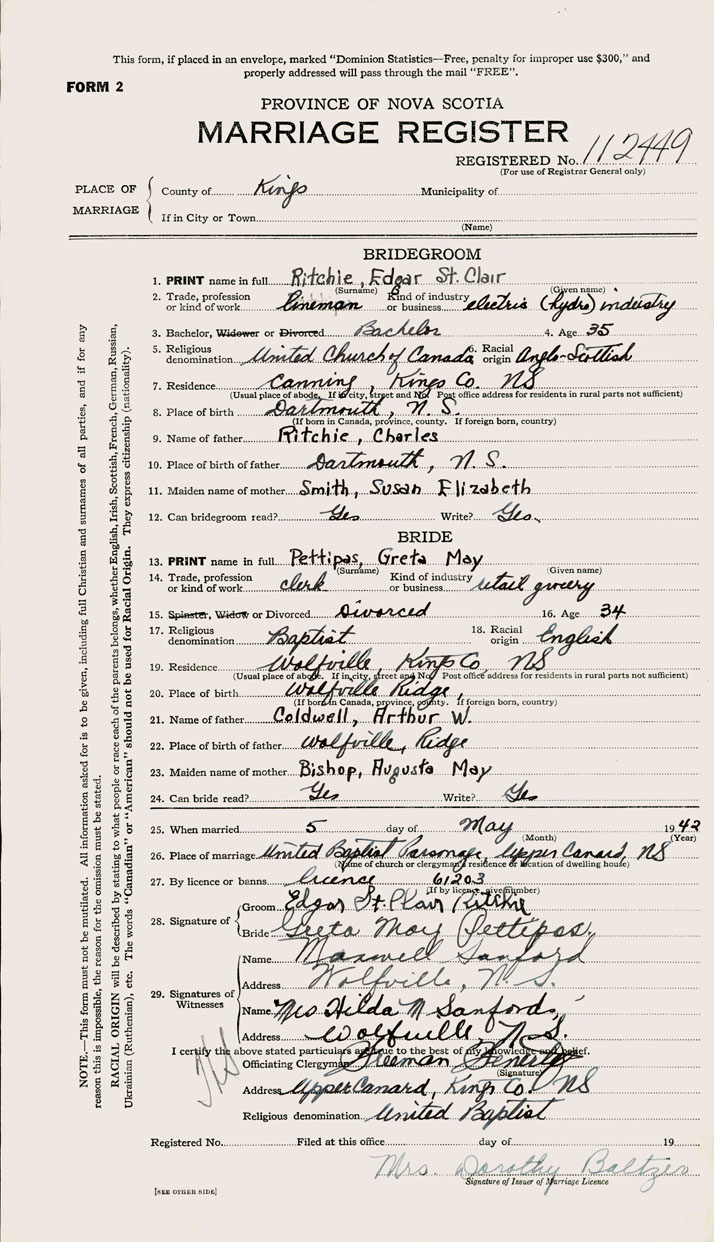 This form, if placed in an envelope, marked "Dominion Statistics—Free, penalty for improper use $300," and
properly addressed will pass through the mail "FREE".
FORM 2
PROVINCE OF NOVA SCOTIA
MARRIAGE REGISTER
REGISTERED No. 112449
(For use of Registrar General only)
PLACE OF MARRIAGE
County of Kings Municipality of
If in City or Town
(Name)
BRIDEGROOM
1. PRINT name in full Ritchie, Edgar St. Clair
(Surname) (Given name)
2. Trade, profession or kind of work Lineman Kind of industry or business electric (hydro) industry
3. Bachelor, Widower or Divorced Bachelor 4. Age 35
5. Religious denomination United Church of Canada 6. Racial origin Anglo-Scottish
7. Residence Canning, Kings Co. NS
(Usual place of abode. If in city, street and No. Post office address for residents in rural parts not sufficient)
8. Place of birth Dartmouth, N.S.
(If born in Canada, province, county. If foreign born, country)
9. Name of father Ritchie, Charles
10. Place of birth of father Dartmouth, N.S.
11. Maiden name of mother Smith, Susan Elizabeth
12. Can bridegroom read? Yes Write? Yes.
BRIDE
13. PRINT name in full Pettipas, Greta May
(Surname) (Given name)
14. Trade, profession or kind of work clerk Kind of industry or business retail grocery
15. Spinster, Widow or Divorced Divorced 16. Age 34
17. Religious denomination Baptist 18. Racial origin English
19. Residence Wolfville, Kings Co, NS
(Usual place of abode. If in city, street and No. Post office address for residents in rural parts not sufficient)
20. Place of birth Wolfville Ridge,
(If born in Canada, province, county. If foreign born, country)
21. Name of father Coldwell, Arthur W.
22. Place of birth of father Wolfville, Ridge
23. Maiden name of mother Bishop, Augusta May
24. Can bride read? Yes Write? Yes
25. When married 5 day of May 1942
(Month) (Year)
26. Place of marriage United Baptist Parsonage, Upper Canard, NS
(Name of church or clergyman's residence or location of dwelling house)
27. By licence or banns licence 61203
(If by licence, give number)
28. Signature of
Groom Edgar St. Clair Ritchie
Bride Greta May Pettipas.
29. Signatures of Witnesses
Name Maxwell Sanford
Address Wolfville, N.S.
Name Mrs Hilda M Sanford,
Address Wolfville, N.S.
I certify the above stated particulars are true to the best of my knowledge and belief.
Officiating Clergyman Freeman Fenerty
(Signature)
Address Upper Canard, Kings Co. NS
Religious denomination United Baptist
Registered No. Filed at this office day of 19
Mrs. Dorothy Baltzer
Signature of Issuer of Marriage Licence
[SEE OTHER SIDE]
NOTE.—This form must not be mutilated. All information asked for is to be given, including full Christian and surnames of all parties, and if for any
reason this is impossible, the reason for the omission must be stated.
RACIAL ORIGIN will be described by stating to what people or race each of the parents belongs, whether English, Irish, Scottish, French, German, Russian,
Ukrainian (Ruthenian), etc. The words "Canadian" or "American" should not be used for Racial Origin. They express citizenship (nationality).